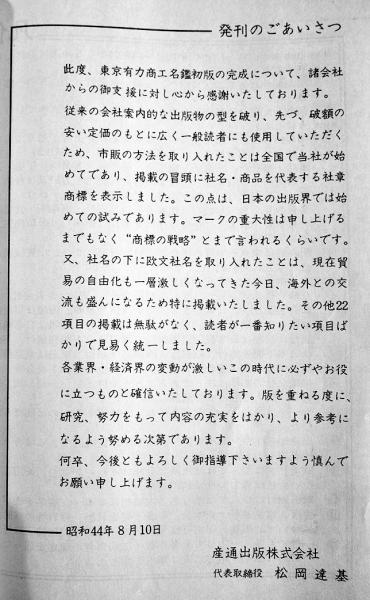 発刊のごあいさつ
此度、東京有力商工名鑑初版の完成について、諸会社
からの御支援に対し心から感謝いたしております。
従来の会社案内的な出版物の型を破り、先づ、破額の
安い定価のもとに広く一般読者にも使用していただく
ため、市販の方法を取り入れたことは全国で当社が始
めてであり、掲載の冒頭に社名・商品を代表する社章
商標を表示しました。この点は、日本の出版界では始
めての試みであります。マークの重大性は申し上げる
までもなく“商標の戦略”とまで言われるくらいです。
又、社名の下に欧文社名を取り入れたことは、現在貿
易の自由化も一層激しくなってきた今日、海外との交
流も盛んになるため特に掲載いたしました。その他22
項目の掲載は無駄がなく、読者が一番知りたい項目ば
かりで見易く統一しました。
各業界・経済界の変動が激しいこの時代に必ずやお役
に立つものと確信いたしております。版を重ねる度に、
研究、努力をもって内容の充実をはかり、より参考に
なるよう努める次第であります。
何卒、今後ともよろしく御指導下さいますよう慎んで
お願い申し上げます。
昭和44年8月10日
産通出版株式会社
代表取締役 松岡達基